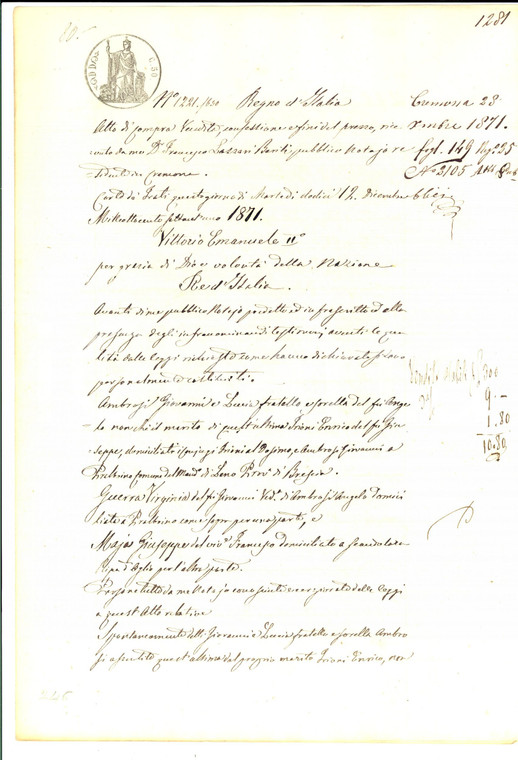 1281
80.-
C. 50
N° 1221/1630 Regno d'Italia Cremona 28
Atto di compra Vendita, confessione e fini del prezzo, rice xmbre 1871.
vuto da me Dr. Francesco Lazzari Bonti, pubblico Notajo re fogl. 149
sidente in Cremona. N° 2105
questo giorno di Martedì dodici 12. Dicembre
Milleottocento settantuno 1871.
Vittorio Emanuele II°
per grazia di Dio e volontà della Nazione
Re d'Italia.
Avanti di me pubblico Notajo predetto ed infrascritto ed alla
presenza degli infranominandi testimonj, aventi le qua
lità dalla Legge richieste come hanno dichiarato si sono
personalmente costituiti.
Ambrosj Giovanni e Lucia fratello e sorella del fu Ange
lo nonchè il marito di quest'ultima Trioni Enrico del fu Giu
seppe, domiciliati i conjugi Trioni a, Ambrosj Giovanni a
Pralboino comune del Mand. di Leno Prov. di Brescia.
Guerra Virginia del fu Giovanni Ved. di Ambrosj Angelo domici
liata a Pralboino come sopra per una parte, e
Maja Giuseppe del viv. Francesco domiciliato a Scandolara
Ripa d'Oglio per l'altra parte.
Persone tutte da me Notajo conosciute e non vietate dalla Legge
a quest'Atto relative
Spontaneamente detti Giovanni e Lucia fratello e sorella Ambro
sj assentito quest'ultima dal proprio marito Trioni Enrico, non
300
9.--
1.80
10.80